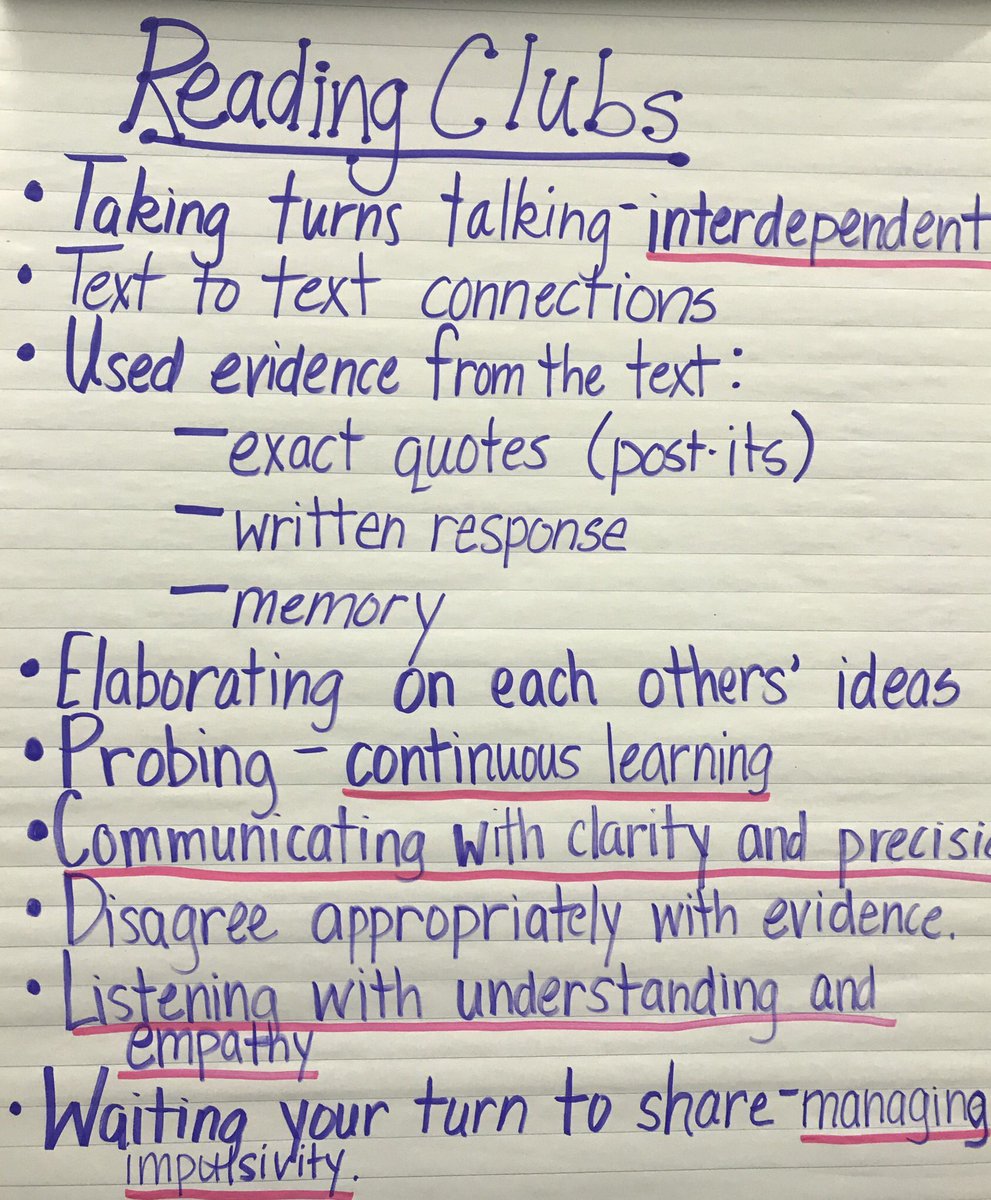 Reading Clubs
• Taking turns talking - interdependent
• Text to text connections
• Used evidence from the text:
— exact quotes (post-its)
— written response
— memory
• Elaborating on each others' ideas
• Probing – continuous learning
• Communicating with clarity and precisio
• Disagree appropriately with evidence.
• Listening with understanding and
empathy
• Waiting your turn to share - managing
impulsivity.